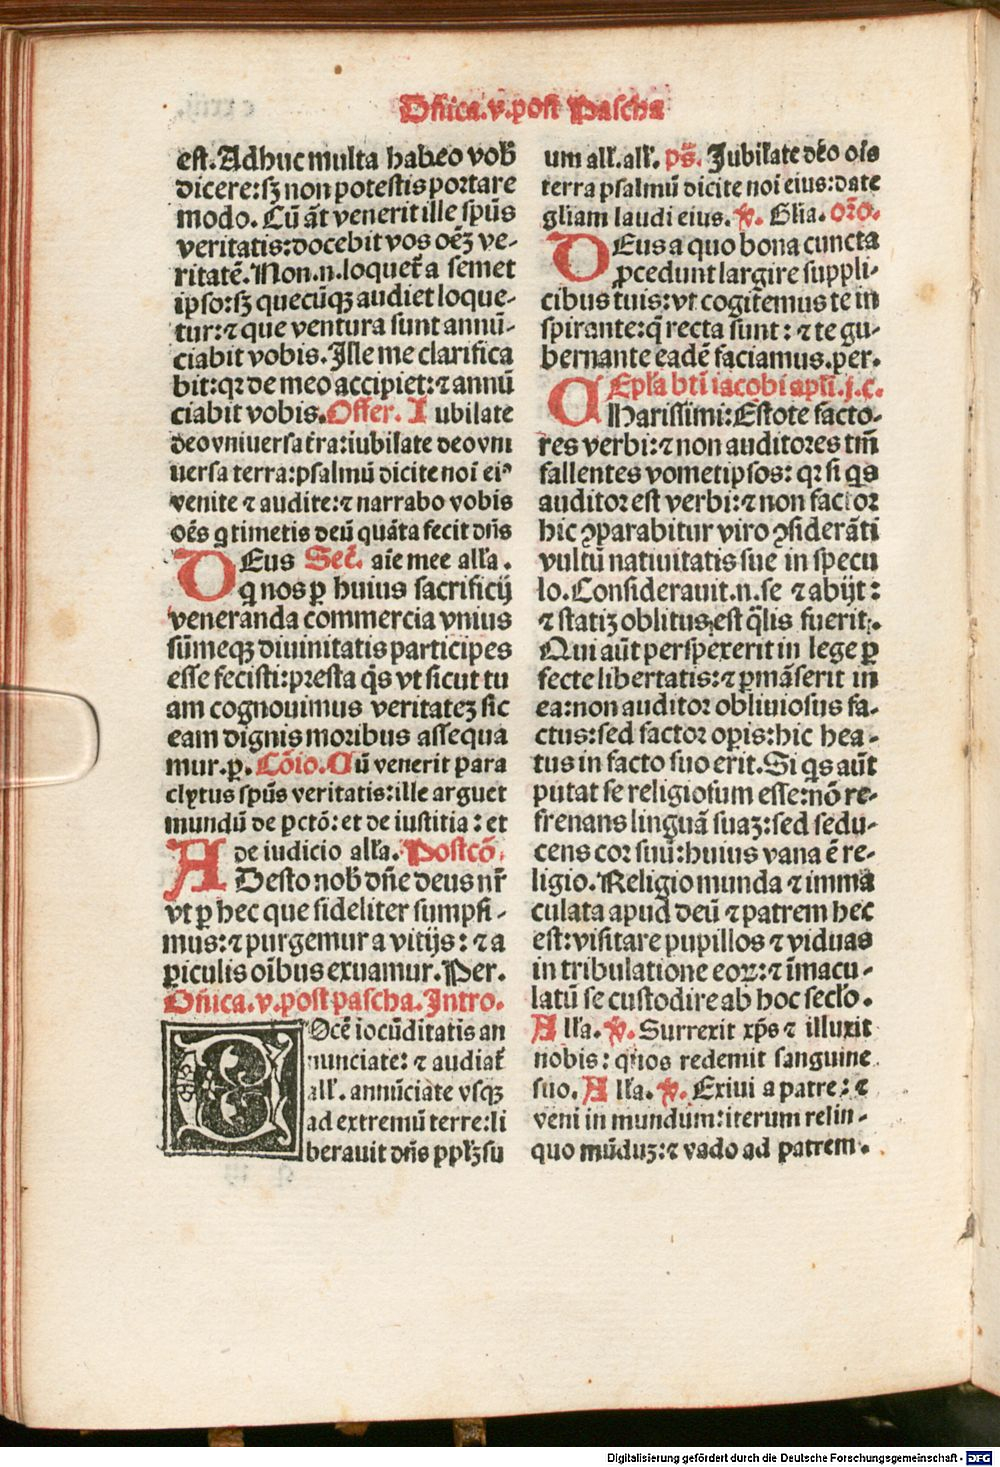 Dñica.v.post Pascha
est. Adhuc multa habeo vob̃
dicere:sꝫ non potestis portare
modo. Cũ ãt venerit ille spũs
veritatis:docebit vos oẽꝫ ve-
ritatẽ. Non.n.loquet̃ a semet
ipso:sꝫ quecũqꝫ audiet loque-
tur:⁊ que ventura sunt annũ-
ciabit vobis. Ille me clarifica
bit:qꝛ de meo accipiet:⁊ annũ
ciabit vobis. Offer. Iubilate
deo vniuersa t̃ra:iubilate deo vni
uersa terra:psalmũ dicite noĩ eiꝰ
venite ⁊ audite:⁊ narrabo vobis
oẽs q timetis deũ quãta fecit dñs
Deus Sec̃. aĩe mee all̃a.
q nos ꝑ huius sacrificij
veneranda commercia vnius
sũmeqꝫ diuinitatis participes
esse fecisti:presta q̃s vt sicut tu
am cognouimus veritateꝫ sic
eam dignis moribus assequa
mur.ꝑ. Cõio. Cũ venerit para
clytus spũs veritatis:ille arguet
mundũ de pctõ: et de iustitia: et
de iudicio all̃a. Postcõ.
ADesto nob̃ dñe deus nr̃
vt ꝑ hec que fideliter sumpsi-
mus:⁊ purgemur a vitijs: ⁊ a
ꝑiculis oĩbus exuamur. Per.
Dñica.v.post pascha. Intro.
Vocẽ iocũditatis an
nunciate: ⁊ audiat̃
all̃. annũciate vsqꝫ
ad extremũ terre:li
berauit dñs pplꝫ su
um all̃. all̃. ps̃. Iubilate deo oĩs
terra psalmũ dicite noĩ eius:date
gliam laudi eius. ℣. Glia. Orõ.
DEus a quo bona cuncta
ꝓcedunt largire suppli-
cibus tuis:vt cogitemus te in
spirante:q̃ recta sunt: ⁊ te gu-
bernante eadẽ faciamus.per.
Epl̃a bt̃i iacobi apl̃i.j.c.
CHarissimi:Estote facto-
res verbi:⁊ non auditores tm̃
fallentes vometipsos: qꝛ si qs
auditor est verbi:⁊ non factor
hic ꝯparabitur viro ꝯsiderãti
vultũ natiuitatis sue in specu
lo. Considerauit.n.se ⁊ abijt:
⁊ statiꝫ oblitus est q̃lis fuerit.
Qui aũt perspexerit in lege ꝑ
fecte libertatis:⁊ ꝑmãserit in
ea:non auditor obliuiosus fa-
ctus:sed factor oꝑis:hic bea-
tus in facto suo erit. Si qs aũt
putat se religiosum esse:nõ re-
frenans linguã suaꝫ:sed sedu-
cens cor suũ:huius vana ẽ re-
ligio. Religio munda ⁊ imma
culata apud deũ ⁊ patrem hec
est:visitare pupillos ⁊ viduas
in tribulatione eoꝝ:⁊ ĩmacu-
latũ se custodire ab hoc secl̃o.
All̃a. ℣. Surrexit xp̃s ⁊ illuxit
nobis: quos redemit sanguine
suo. All̃a. ℣. Exiui a patre: ⁊
veni in mundum:iterum relin-
quo mũduꝫ:⁊ vado ad patrem.
Digitalisierung gefördert durch die Deutsche Forschungsgemeinschaft - DFG